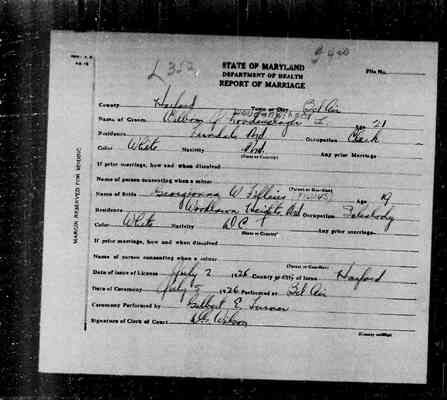 L 352
STATE OF MARYLAND
DEPARTMENT OF HEALTH
REPORT OF MARRIAGE
File No.
County Harford Town or City Bel Air
Name of Groom Age 21
Residence Md. Occupation Clerk
Color White Nativity Md. Any prior Marriage
(State or Country)
If prior marriage, how and when dissolved
Name of person consenting when a minor
(Parent or Guardian)
Name of Bride Georgianna W. Age 19
Residence Woodlawn Heights Md Occupation Saleslady
Color White Nativity D.C. Any prior marriage
(State or Country)
If prior marriage, how and when dissolved
Name of person consenting when a minor
(Parent or Guardian)
Date of Issue of License July 2 1926 County or City of Issue Harford
Date of Ceremony July 5 1926 Performed at Bel Air
Ceremony Performed by Gilbert E. Turner
Signature of Clerk of Court Wilson
MARGIN RESERVED FOR BINDING